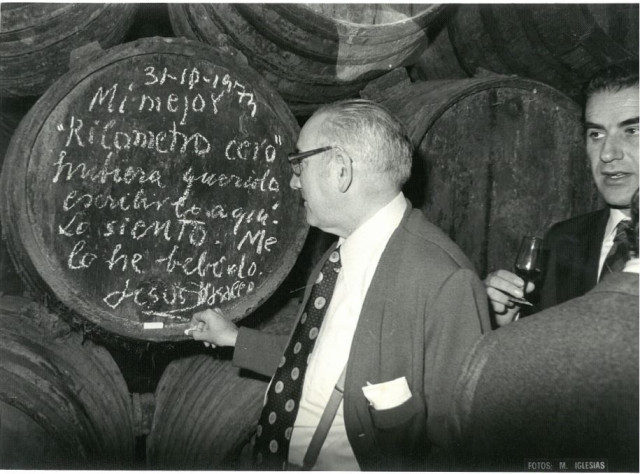 31-10-1973
Mi mejor
"Kilometro cero"
hubiera querido
escribirlo aquí.
Lo siento. Me
lo he bebido.
Jesús
FOTOS: M. IGLESIAS